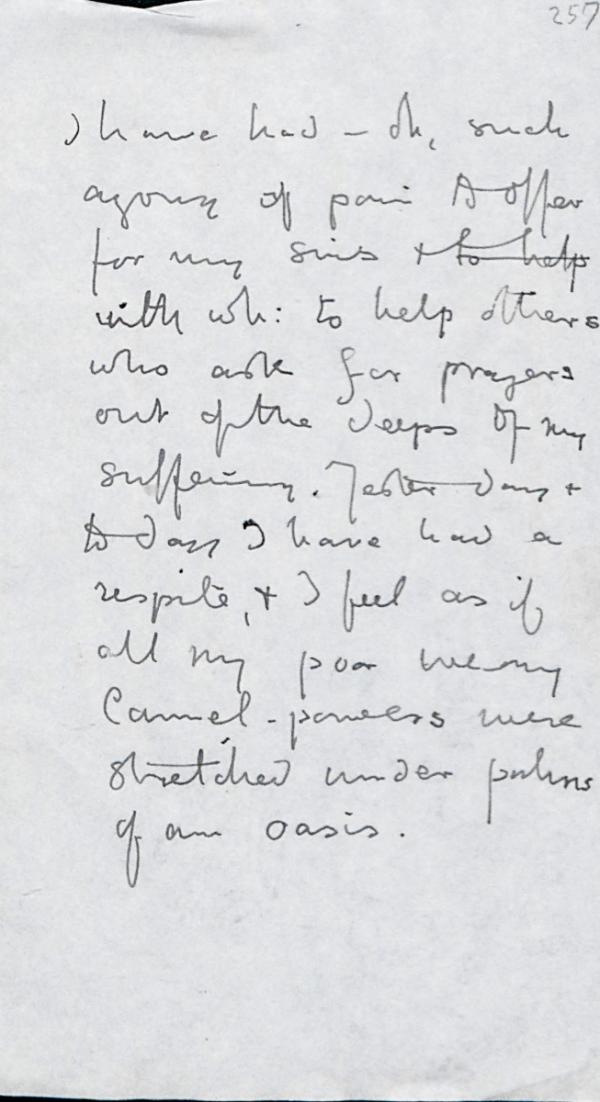 257
I have had – Oh, such
agony of pain to offer
for my sins + to help
with wh: to help others
who ask for prayers
out of the deeps of my
suffering. Yesterday +
to day I have had a
respite, + I feel as if
all my poor weary
Camel-powers were
stretched under palms
of an oasis.